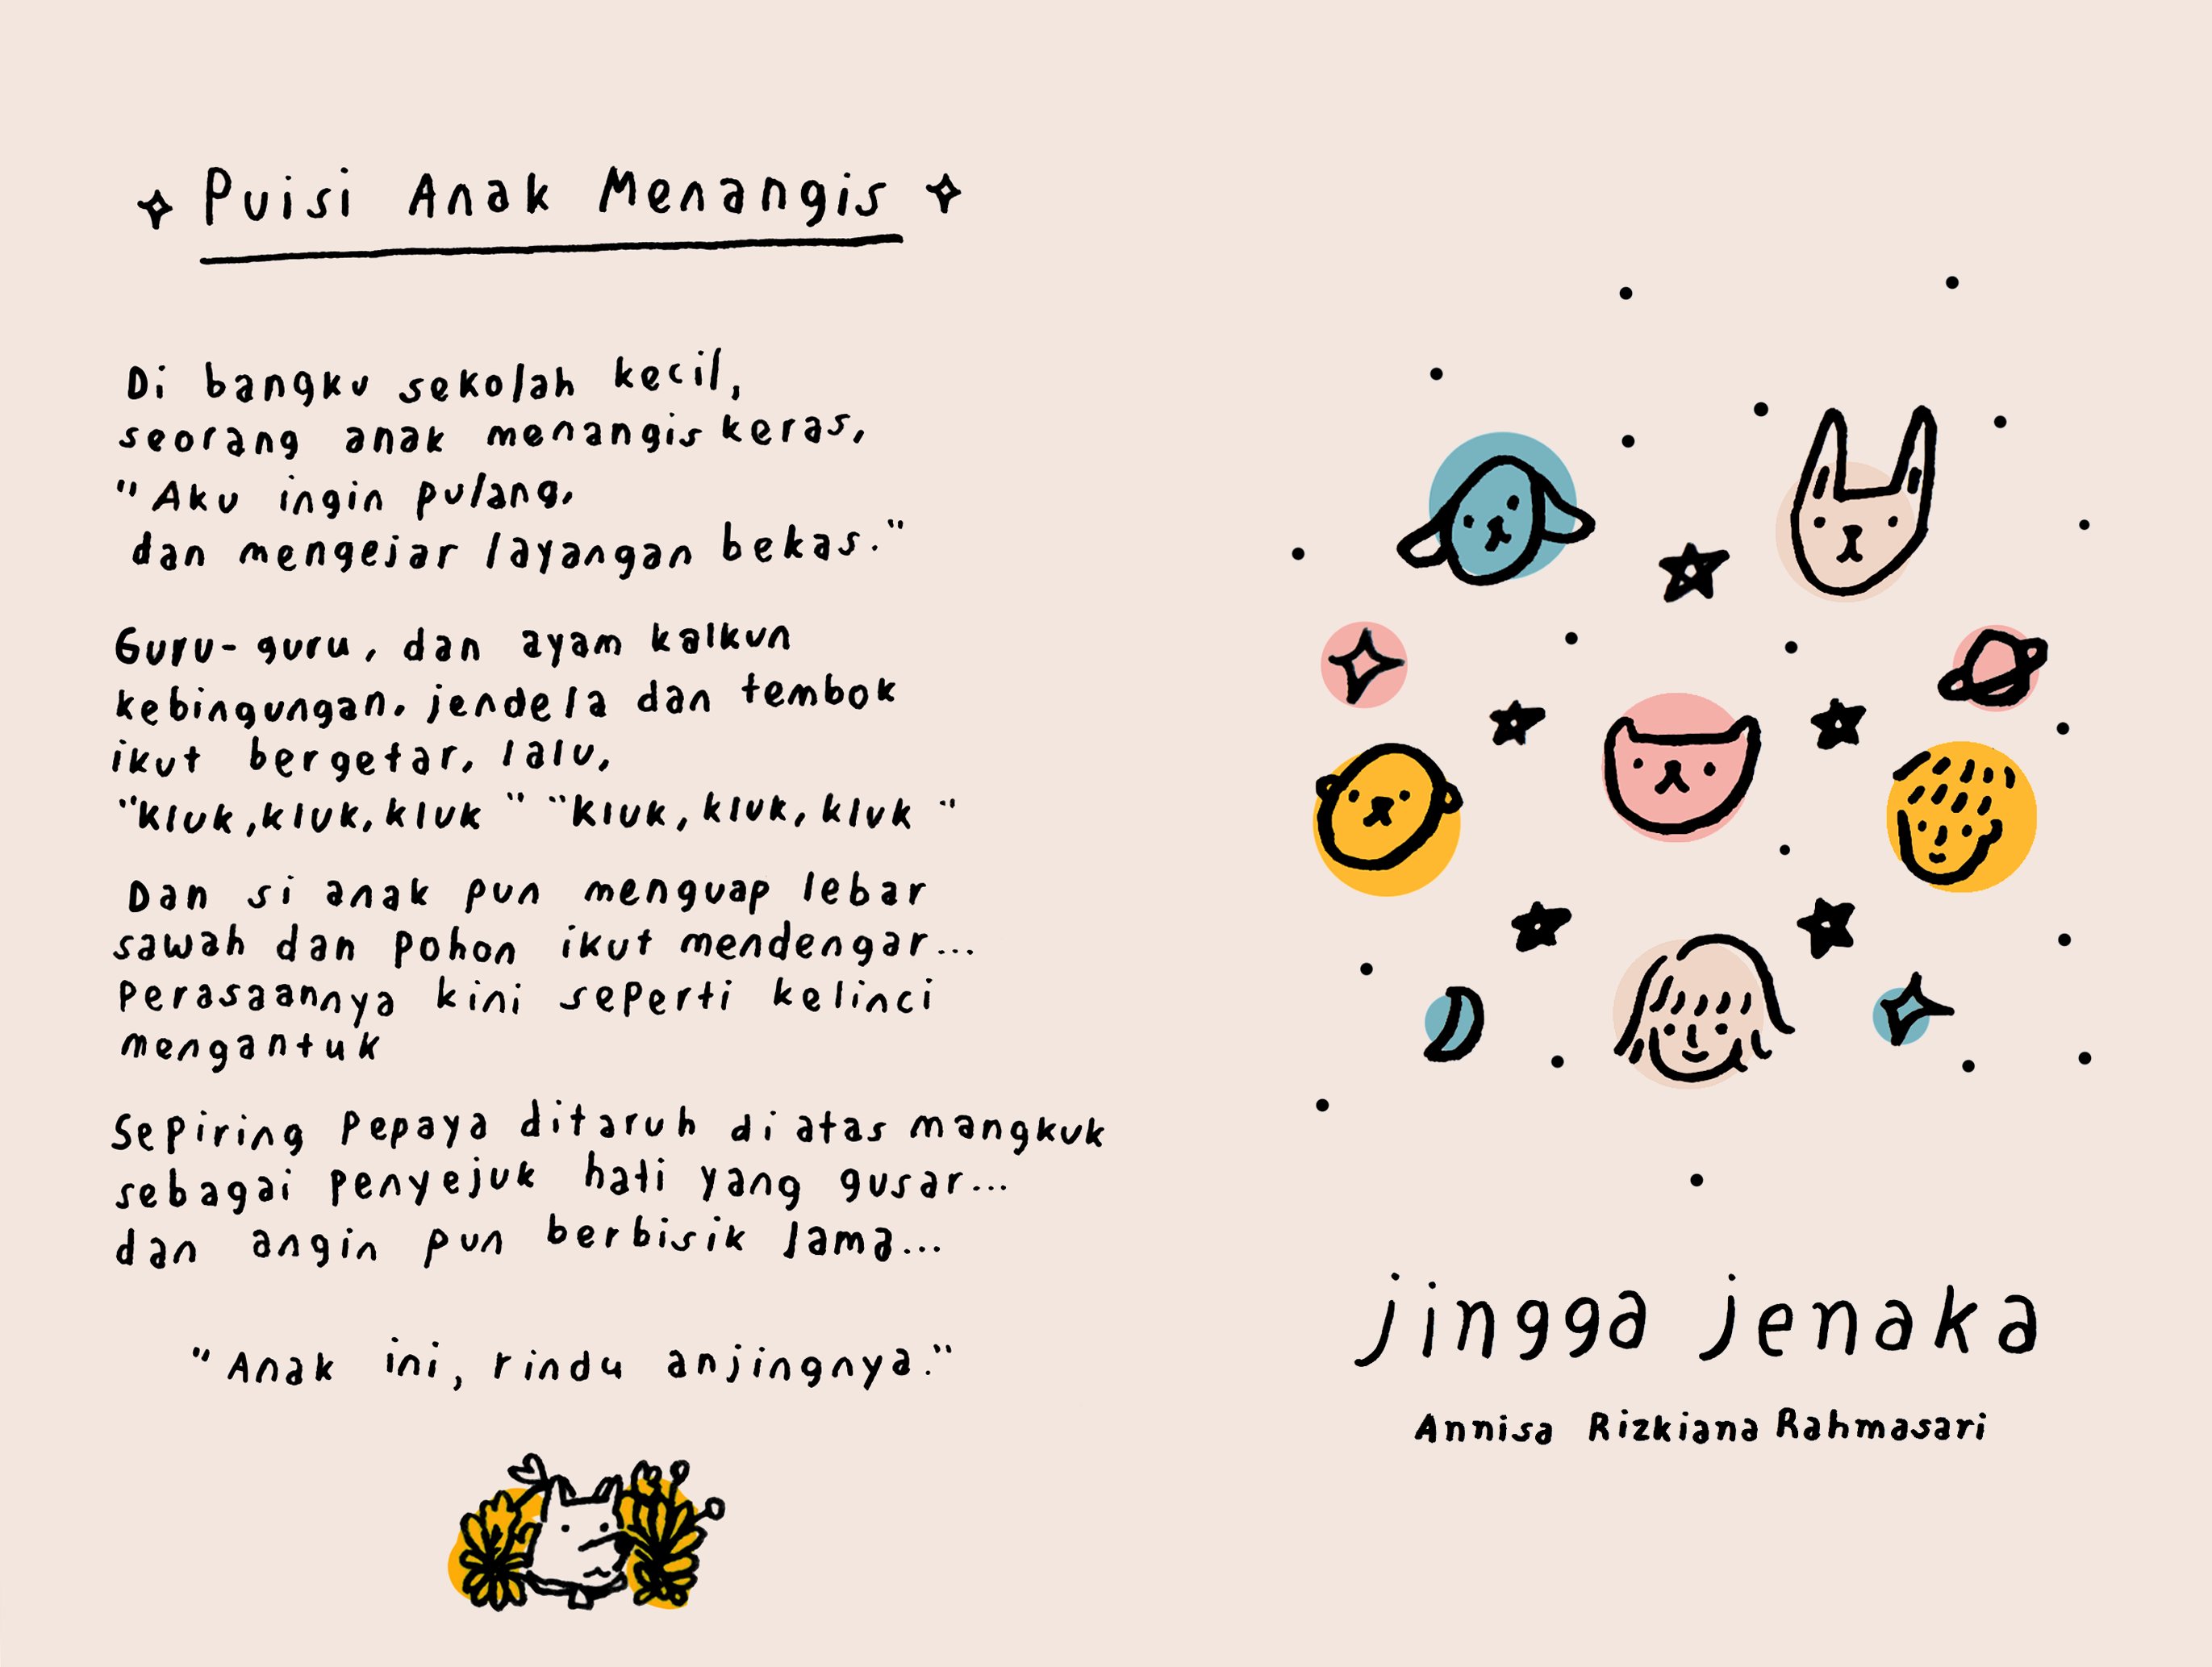 Puisi Anak Menangis
Di bangku sekolah kecil,
seorang anak menangis keras,
"Aku ingin pulang,
dan mengejar layangan bekas."
Guru-guru, dan ayam kalkun
kebingungan, jendela dan tembok
ikut bergetar, lalu,
"Kluk,kluk,kluk" "Kluk,kluk,kluk"
Dan si anak pun menguap lebar
sawah dan pohon ikut mendengar...
Perasaannya kini seperti kelinci
mengantuk
Sepiring Pepaya ditaruh di atas mangkuk
sebagai penyejuk hati yang gusar...
dan angin pun berbisik lama...
"Anak ini, rindu anjingnya."
jingga jenaka
Annisa Rizkiana Rahmasari